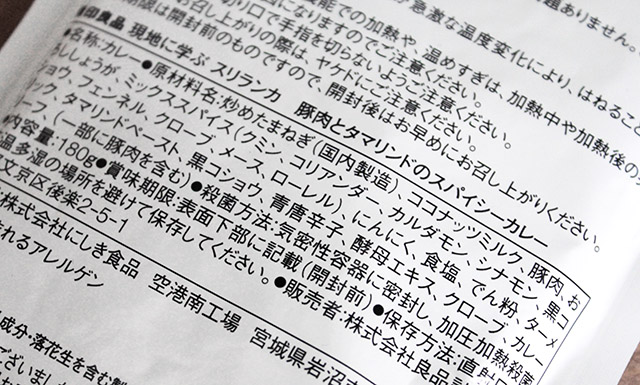 題ありません。
急激な温度変化により、はねること
能での加熱や、温めすぎは、加熱中や加熱後の
になりますのでご注意ください。
切り口で手指を切らないようご注意ください。
お召し上がりの際は、ヤケドにご注意ください。
期限は開封前のものですので、開封後はお早めにお召し上がりください。
印良品 現地に学ぶ スリランカ 豚肉とタマリンドのスパイシーカレー
●名称:カレー●原材料名:炒めたまねぎ(国内製造)、ココナッツミルク、豚肉、お
ろししょうが、ミックススパイス(クミン、コリアンダー、カルダモン、シナモン、黒コ
ショウ、フェンネル、クローブ、メース、ローレル)、にんにく、食塩、でん粉、ターメ
ック、タマリンドペースト、黒コショウ、青唐辛子、酵母エキス、クローブ、カレー
ーフ、(一部に豚肉を含む)●殺菌方法:気密性容器に密封し、加圧加熱殺菌
内容量:180g●賞味期限:表面下部に記載(開封前)●保存方法:直射日
温多湿の場所を避けて保存してください。●販売者:株式会社良品
文京区後楽2-5-1
株式会社にしき食品 空港南工場 宮城県岩沼
まれるアレルゲン
成分・落花生を含む製